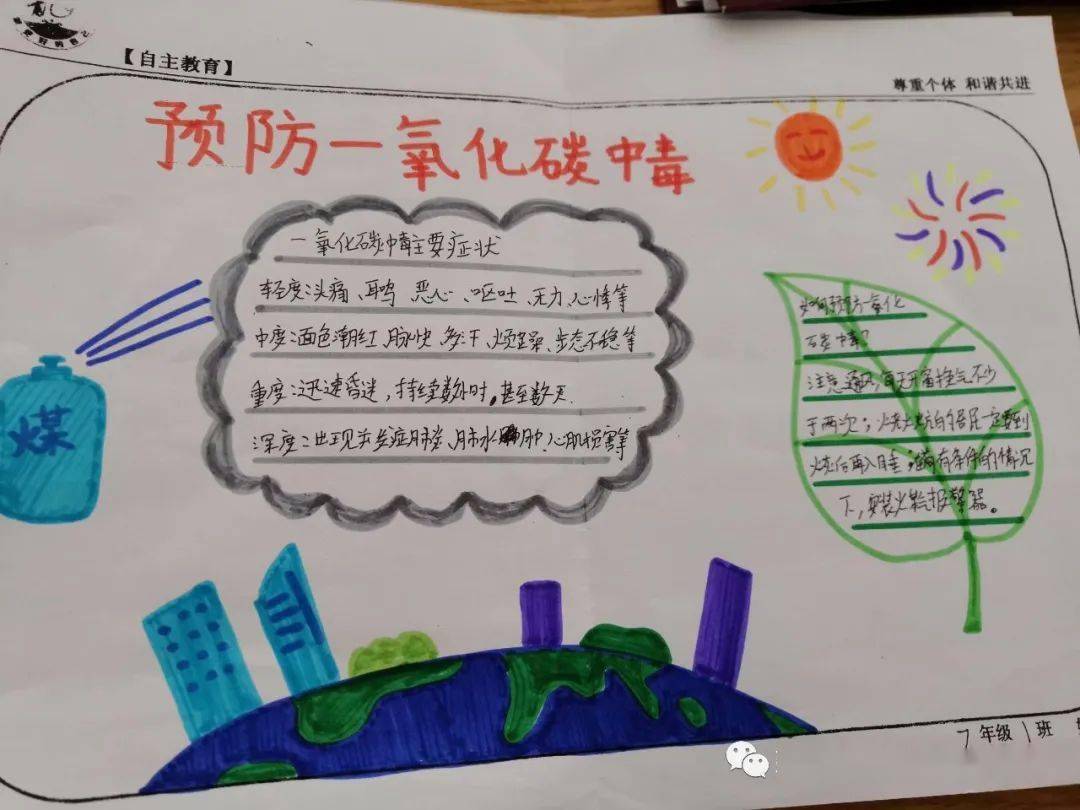 【自主教育】
尊重个体 和谐共进
预防一氧化碳中毒
一氧化碳中毒主要症状
轻度:头痛、耳鸣、恶心、呕吐、无力、心悸等
中度:面色潮红、脉快、多汗、烦躁、步态不稳等
重度:迅速昏迷,持续数小时,甚至数天.
深度:出现并发症肺炎、肺水肿、心肌损害等
煤
如何预防一氧化
碳中毒?
注意通风,每天开窗换气不少
于两次;烧土炕的居民一定要到
烧后再入睡;有条件的情况
下,安装煤气报警器。
7年级1班